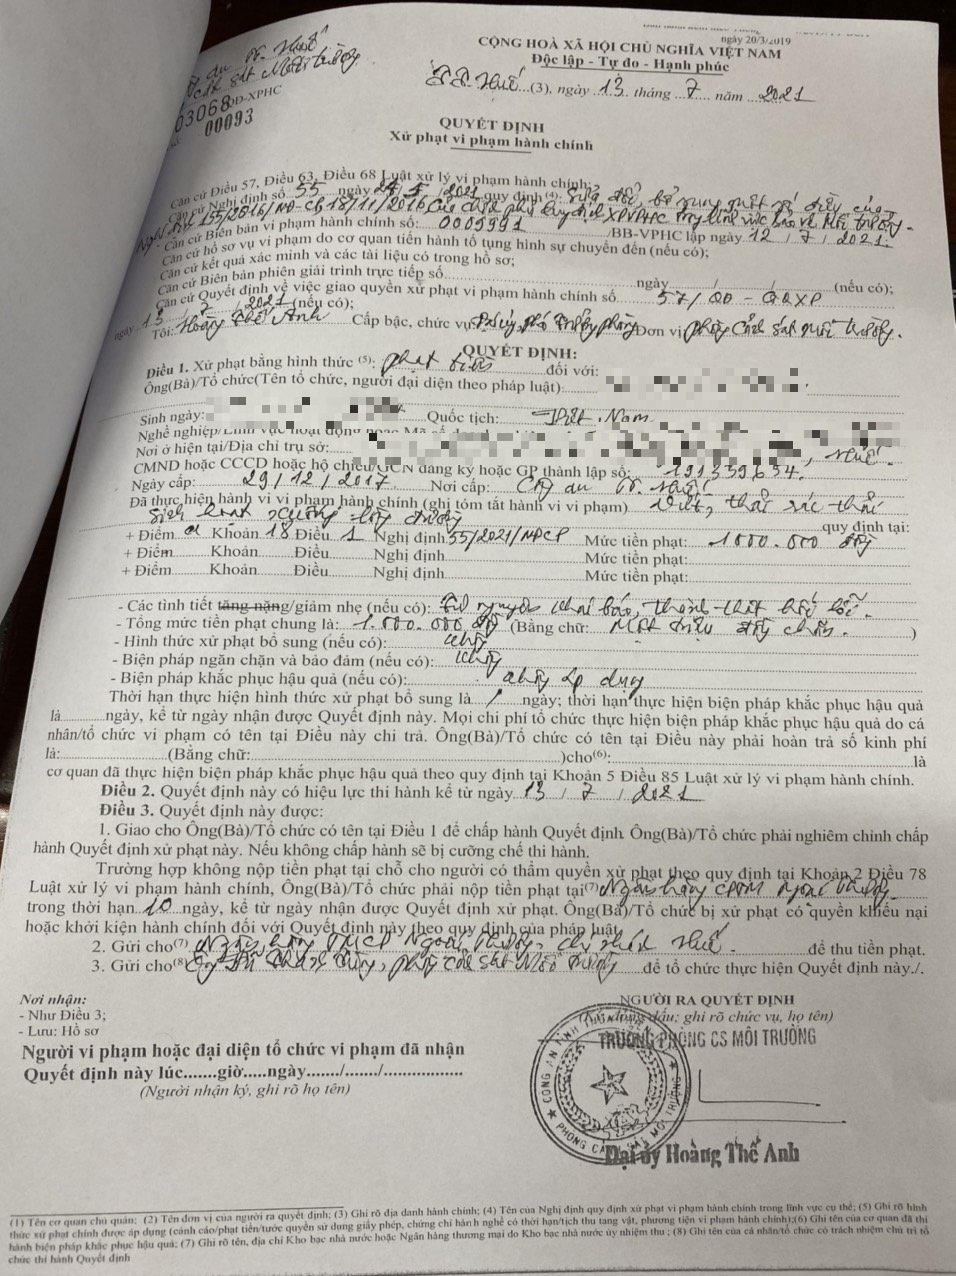 ngày 20/3/2019
CỘNG HOÀ XÃ HỘI CHỦ NGHĨA VIỆT NAM
Độc lập - Tự do - Hạnh phúc
Huế...(3), ngày 13 tháng 7 năm 2021
03068
QĐ-XPHC
00093
QUYẾT ĐỊNH
Xử phạt vi phạm hành chính
Căn cứ Điều 57, Điều 63, Điều 68 Luật xử lý vi phạm hành chính;
Căn cứ Nghị định số 55 ngày 24/5/2021 quy định (4) Sửa đổi, bổ sung một số điều của
Nghị định 155/2016/NĐ-CP 18/11/2016 của chính phủ quy định XPVPHC trong lĩnh vực bảo vệ Môi trường.
- Căn cứ Biên bản vi phạm hành chính số: 0009991 /BB-VPHC lập ngày 12 / 7 / 2021.
Căn cứ hồ sơ vụ vi phạm do cơ quan tiến hành tố tụng hình sự chuyển đến (nếu có);
Căn cứ kết quả xác minh và các tài liệu có trong hồ sơ;
Căn cứ Biên bản phiên giải trình trực tiếp số ngày / / (nếu có);
Căn cứ Quyết định về việc giao quyền xử phạt vi phạm hành chính số 57/QĐ - GQXP
ngày 13 / 2 / 2021 (nếu có);
Tôi: Hoàng Thế Anh Cấp bậc, chức vụ: Đại úy, phó trưởng phòng Đơn vị phòng Cảnh sát môi trường.
QUYẾT ĐỊNH:
Điều 1. Xử phạt bằng hình thức (5): phạt tiền đối với:
Ông(Bà)/Tổ chức(Tên tổ chức, người đại diện theo pháp luật):
Sinh ngày: Quốc tịch: Việt Nam
Nghề nghiệp/Lĩnh vực hoạt động
Nơi ở hiện tại/Địa chỉ trụ sở: , Huế.
CMND hoặc CCCD hoặc hộ chiếu/GCN đăng ký hoặc GP thành lập số: 191359654.
Ngày cấp: 29/12/2017 Nơi cấp: Công an
Đã thực hiện hành vi vi phạm hành chính (ghi tóm tắt hành vi vi phạm) Vứt, thải rác thải
sinh hoạt xuống lòng đường quy định tại:
+ Điểm a Khoản 18 Điều 1 Nghị định 55/2021/NĐCP Mức tiền phạt: 1000.000 đồng
+ Điểm Khoản Điều Nghị định Mức tiền phạt:
+ Điểm Khoản Điều Nghị định Mức tiền phạt:
- Các tình tiết tăng nặng/giảm nhẹ (nếu có): tự nguyện khai báo, thành thật hối lỗi.
- Tổng mức tiền phạt chung là: 1.000.000 đồng (Bằng chữ: Một triệu đồng chẵn. )
- Hình thức xử phạt bổ sung (nếu có): không
- Biện pháp ngăn chặn và bảo đảm (nếu có): không
- Biện pháp khắc phục hậu quả (nếu có): không áp dụng
Thời hạn thực hiện hình thức xử phạt bổ sung là / ngày; thời hạn thực hiện biện pháp khắc phục hậu quả
là ngày, kể từ ngày nhận được Quyết định này. Mọi chi phí tổ chức thực hiện biện pháp khắc phục hậu quả do cá
nhân/tổ chức vi phạm có tên tại Điều này chi trả. Ông(Bà)/Tổ chức có tên tại Điều này phải hoàn trả số kinh phí
là: (Bằng chữ: )cho(6): là
cơ quan đã thực hiện biện pháp khắc phục hậu quả theo quy định tại Khoản 5 Điều 85 Luật xử lý vi phạm hành chính.
Điều 2. Quyết định này có hiệu lực thi hành kể từ ngày 13 / 7 / 2021
Điều 3. Quyết định này được:
1. Giao cho Ông(Bà)/Tổ chức có tên tại Điều 1 để chấp hành Quyết định. Ông(Bà)/Tổ chức phải nghiêm chỉnh chấp
hành Quyết định xử phạt này. Nếu không chấp hành sẽ bị cưỡng chế thi hành.
Trường hợp không nộp tiền phạt tại chỗ cho người có thẩm quyền xử phạt theo quy định tại Khoản 2 Điều 78
Luật xử lý vi phạm hành chính, Ông(Bà)/Tổ chức phải nộp tiền phạt tại(7) Ngân hàng TMCP Ngoại thương
trong thời hạn 10 ngày, kể từ ngày nhận được Quyết định xử phạt. Ông(Bà)/Tổ chức bị xử phạt có quyền khiếu nại
hoặc khởi kiện hành chính đối với Quyết định này theo quy định của pháp luật.
2. Gửi cho(7) Ngân hàng TMCP Ngoại thương, chi nhánh Huế. để thu tiền phạt.
3. Gửi cho(8) phòng Cảnh sát Môi trường để tổ chức thực hiện Quyết định này./.
Nơi nhận:
- Như Điều 3;
- Lưu: Hồ sơ
Người vi phạm hoặc đại diện tổ chức vi phạm đã nhận
Quyết định này lúc.......giờ.....ngày......./......./................
(Người nhận ký, ghi rõ họ tên)
NGƯỜI RA QUYẾT ĐỊNH
(Ký, đóng dấu; ghi rõ chức vụ, họ tên)
TRƯỞNG PHÒNG CS MÔI TRƯỜNG
Đại úy Hoàng Thế Anh
(1) Tên cơ quan chủ quản; (2) Tên đơn vị của người ra quyết định; (3) Ghi rõ địa danh hành chính; (4) Tên của Nghị định quy định xử phạt vi phạm hành chính trong lĩnh vực cụ thể; (5) Ghi rõ hình
thức xử phạt chính được áp dụng (cảnh cáo/phạt tiền/tước quyền sử dụng giấy phép, chứng chỉ hành nghề có thời hạn/tịch thu tang vật, phương tiện vi phạm hành chính);(6) Ghi tên của cơ quan đã thi
hành biện pháp khắc phục hậu quả; (7) Ghi rõ tên, địa chỉ Kho bạc nhà nước hoặc Ngân hàng thương mại do Kho bạc nhà nước ủy nhiệm thu ; (8) Ghi tên của cá nhân/tổ chức có trách nhiệm chủ trì tổ
chức thi hành Quyết định